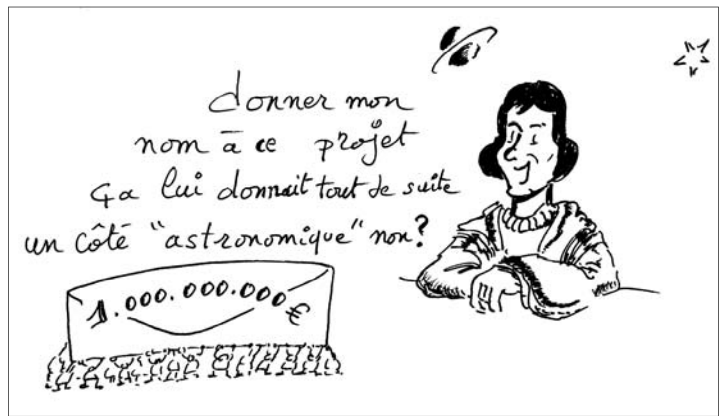 donner mon
nom à ce projet
ça lui donnait tout de suite
un côté "astronomique" non?
1.000.000.000 €